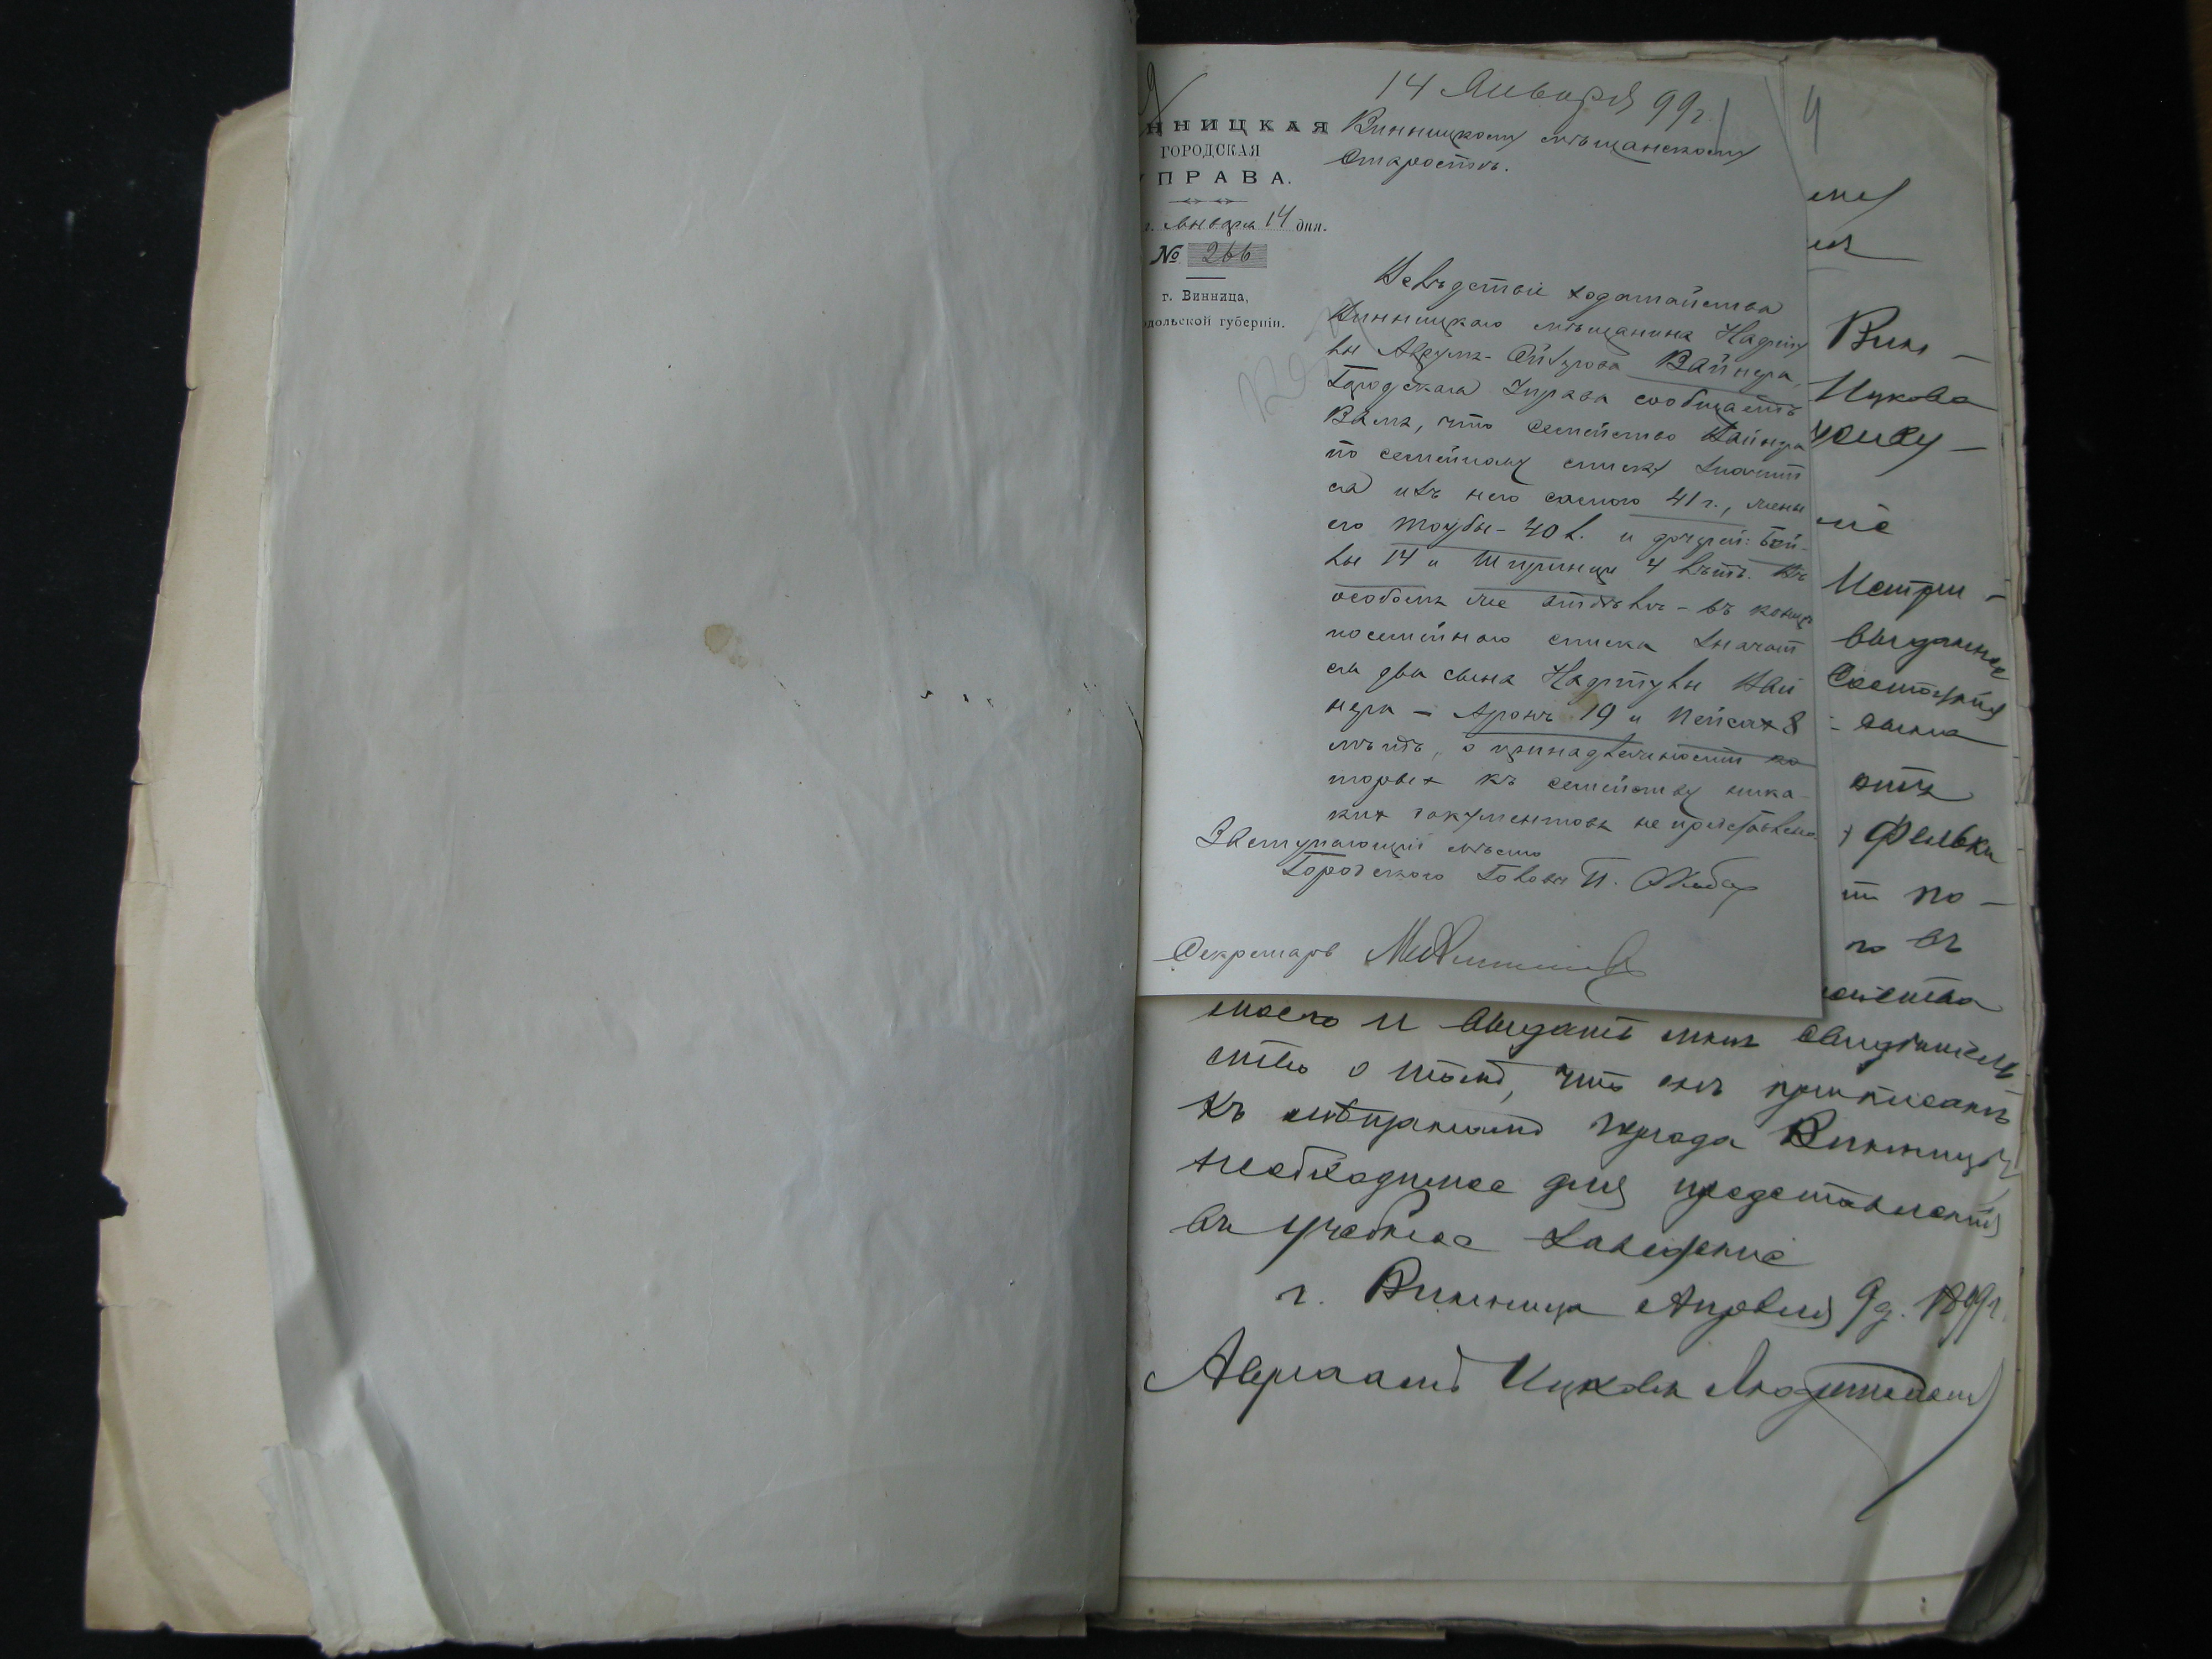 14 Января 99 г.
ННИЦКАЯ
ГОРОДСКАЯ
ПРАВА.
Января 14 дня.
№ 266
г. Винница,
дольской губернiи.
Винницкому мѣщанскому
Старостѣ.
Вслѣдствіе ходатайства
Винницкаго мѣщанина Нафту
лы Аврума-Ойзерова Вайнера,
Городская Управа сообщаетъ
Вамъ, что семейство Вайнера
по семейному списку значит
ся изъ него самого 41 г., жены
его Таубы - 40 л. и дочерей: Бей-
лы 14 и Шпринцы 4 лѣтъ. Въ
особомъ же отдѣлѣ - въ концѣ
посемейного списка значат
ся два сына Нафтулы Вай
нера - Аронъ 19 и Пейсах 8
лѣтъ, о принадлежности ко
торых къ семейству ника
ких документовъ не представлено.
Заступающій мѣсто
Городского Головы П.
Секретарь
4
Вин-
Ицкова
ніе
Метри-
выданное
сына
отъ
Фельки
по-
въ
моего и выдать мнѣ свидѣтель
ство о томъ, что онъ приписанъ
къ мѣщанамъ города Винницы,
необходимое для представленія
въ учебное заведеніе
г. Винница Апрѣля 9 д. 1899 г.
Авраамъ Ицковъ